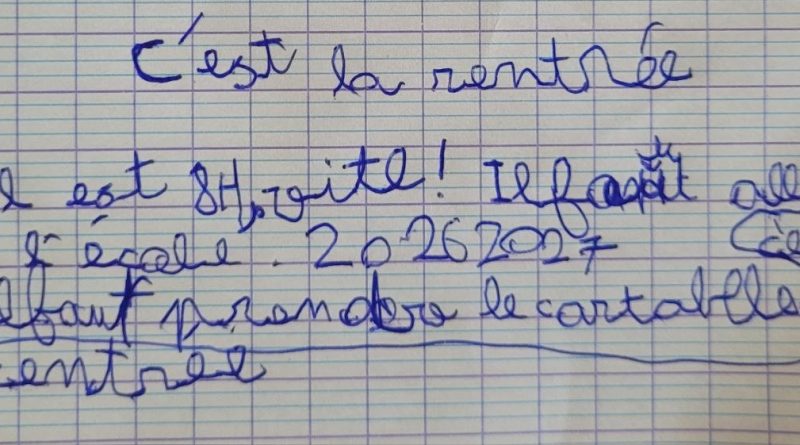 C'est la rentrée
l est 8H, vite! Il faut all
l'école. 2026 2027 Cée
l faut prendre le cartablle
entrée